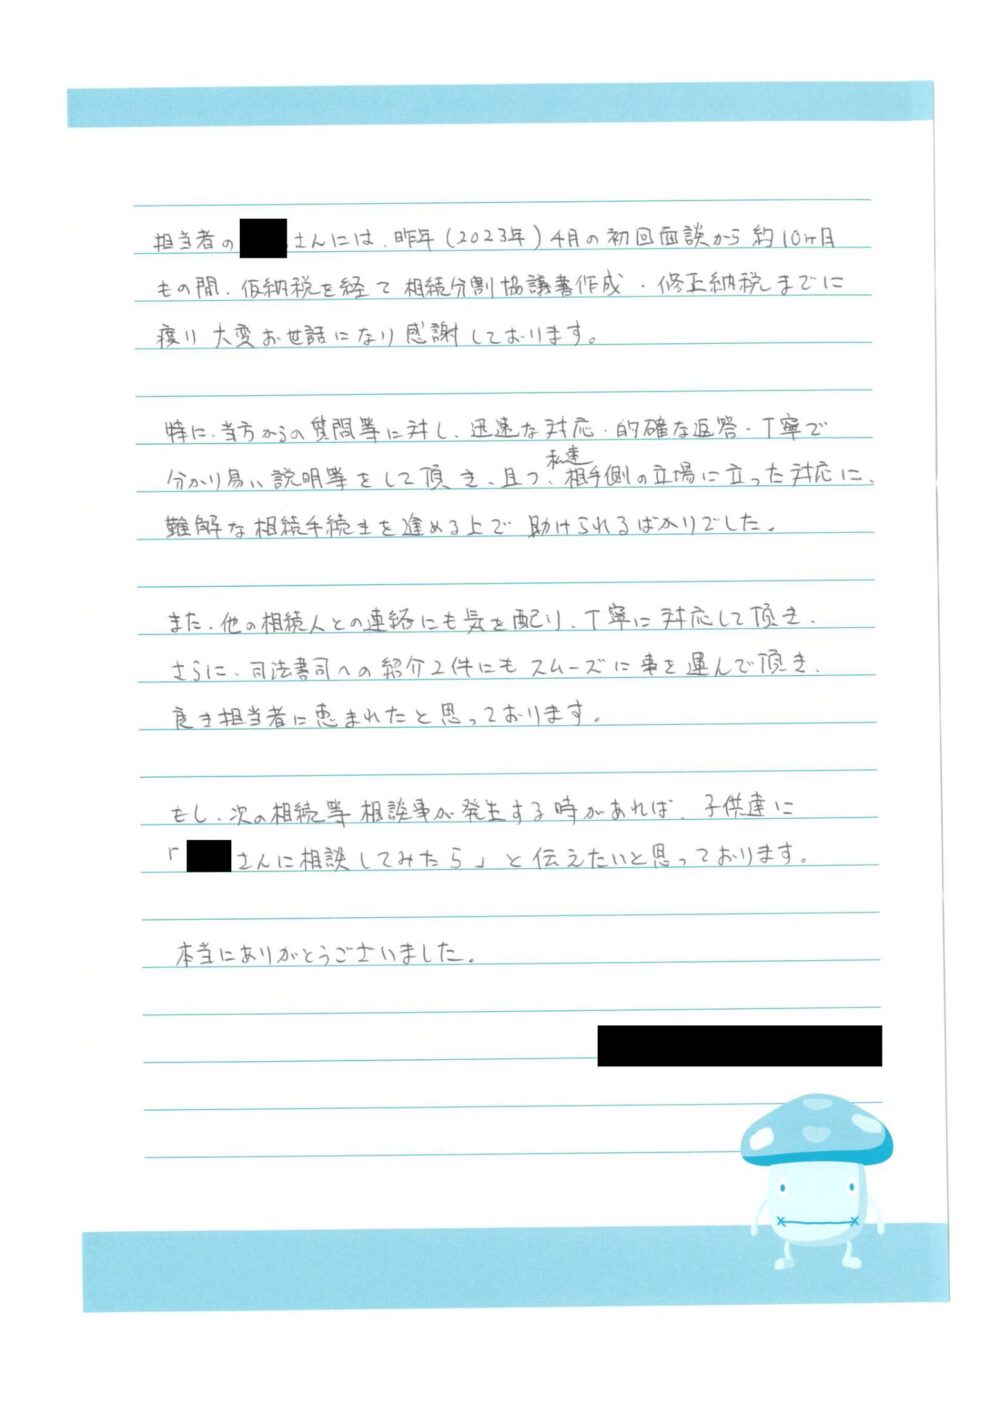 担当者の さんには、昨年(2023年)4月の初回面談から約10ヶ月
もの間、仮納税を経て相続分割協議書作成・修正納税までに
渡り大変お世話になり感謝しております。
特に、当方からの質問等に対し、迅速な対応・的確な返答・丁寧で
分かり易い説明等をして頂き、且つ、私達相手側の立場に立った対応に、
難解な相続手続きを進める上で助けられるばかりでした。
また、他の相続人との連絡にも気を配り、丁寧に対応して頂き、
さらに、司法書司への紹介2件にもスムーズに事を運んで頂き、
良き担当者に恵まれたと思っております。
もし、次の相続等相談事が発生する時があれば、子供達に
「 さんに相談してみたら」と伝えたいと思っております。
本当にありがとうございました。